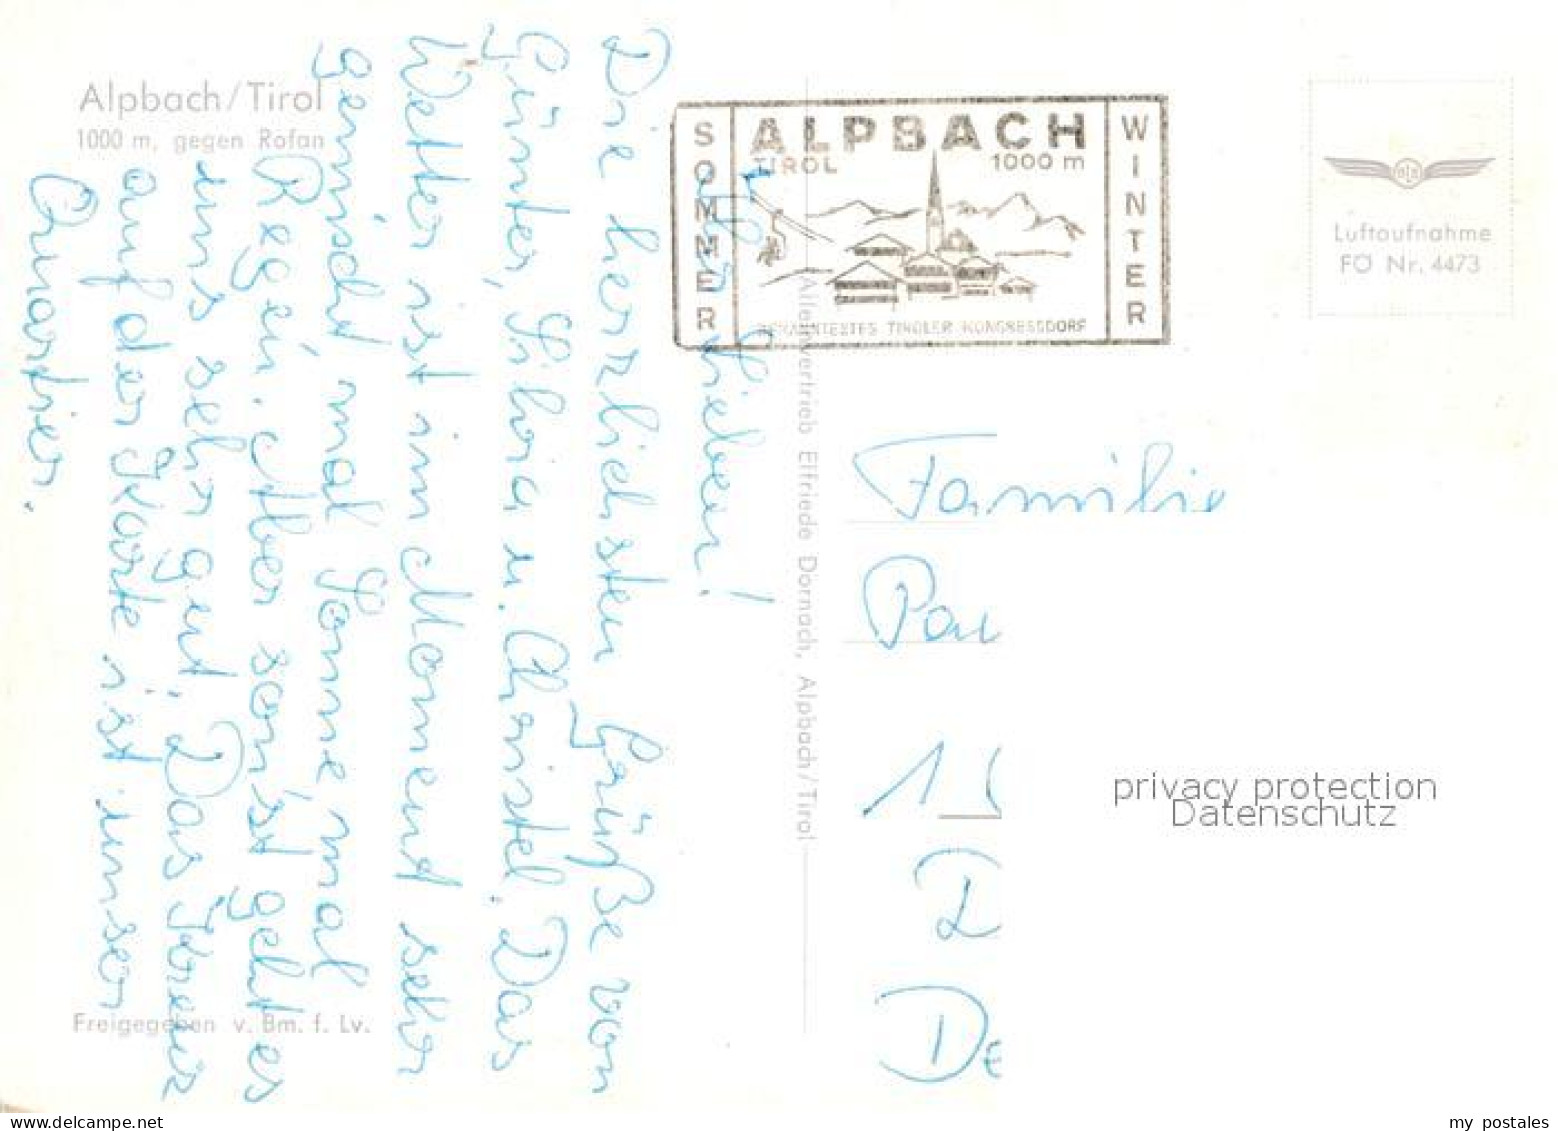 Alpbach/Tirol
1000 m, gegen Rofan
Ihr Lieben!
Die herzlichsten Grüße von
Günter, Silvia u. Christel. Das
Wetter ist im Moment sehr
gemischt mal Sonne, mal
Regen. Aber sonst geht es
uns sehr gut. Das Kreuz
auf der Karte ist unser
Quartier.
Freigegeben v. Bm. f. Lv.
Alleinvertrieb Elfriede Dornach, Alpbach/Tirol
SOMMER
ALPBACH
TIROL 1000 m
BEKANNTESTES TIROLER KONGRESSDORF
WINTER
Luftaufnahme
FO Nr. 4473
Familie
Pau
1
D
De
privacy protection
Datenschutz
my postales